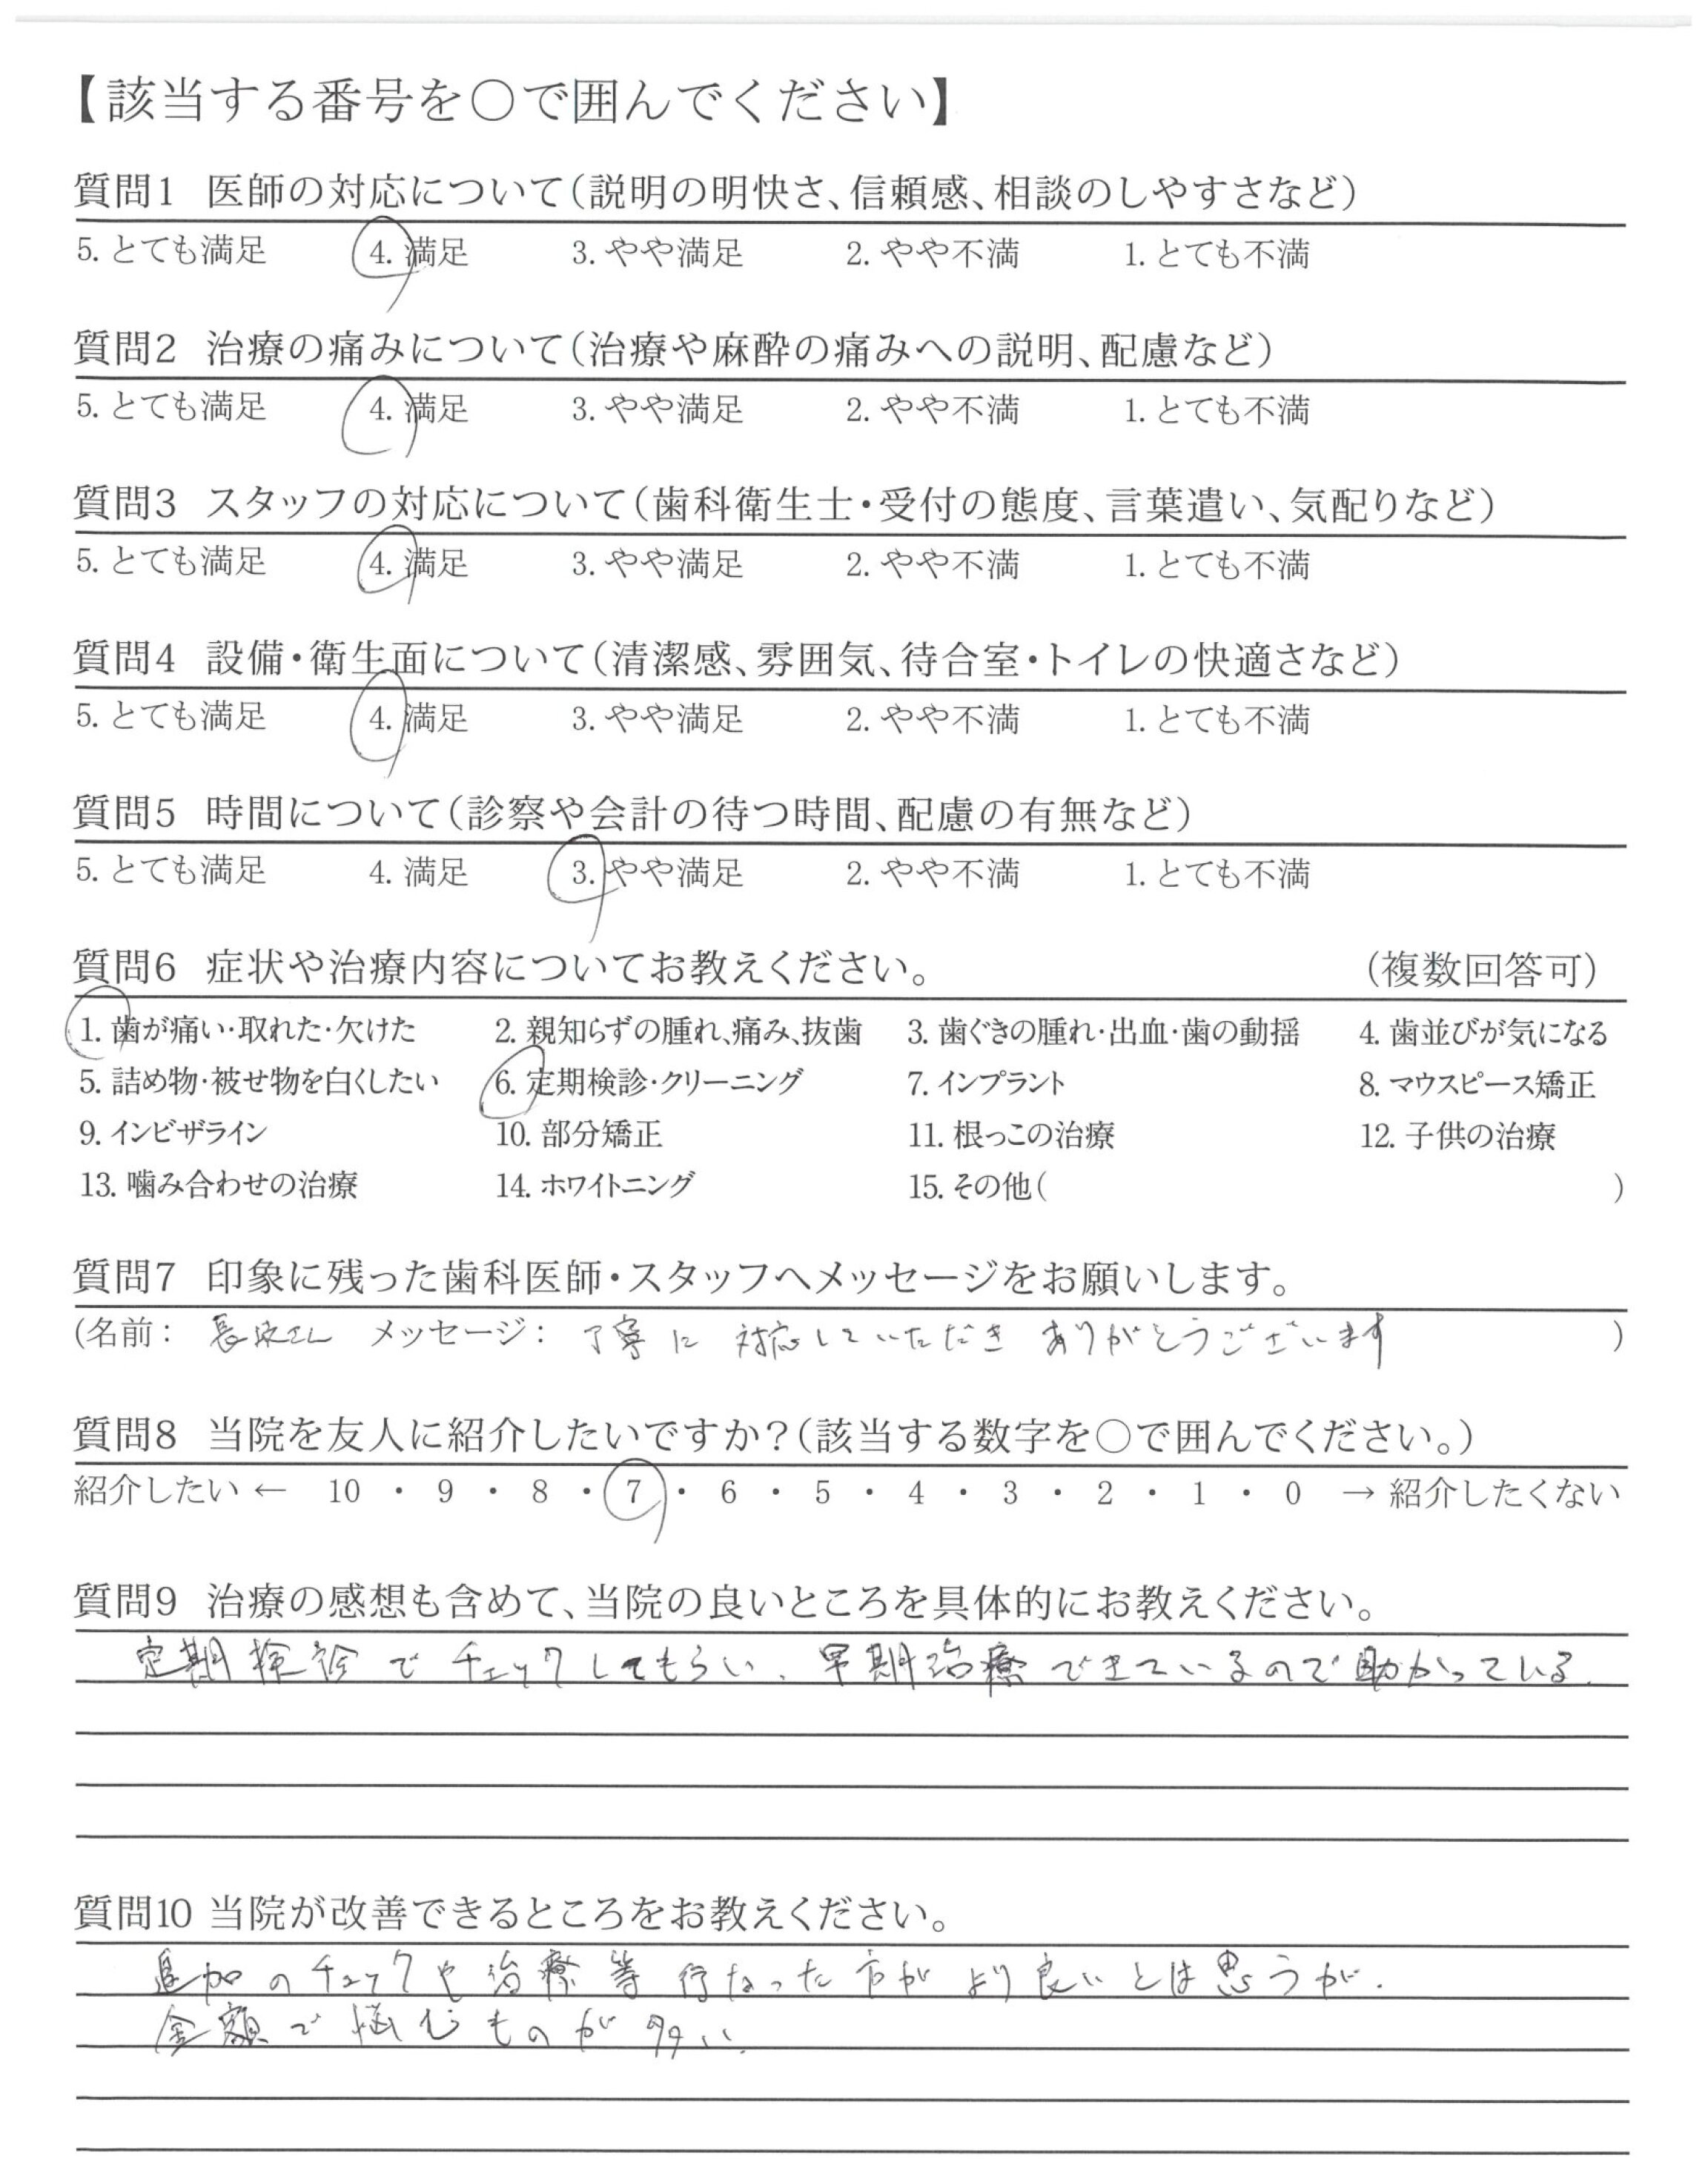 【該当する番号を〇で囲んでください】
質問1 医師の対応について(説明の明快さ、信頼感、相談のしやすさなど)
5. とても満足 4. 満足 3. やや満足 2. やや不満 1. とても不満
質問2 治療の痛みについて(治療や麻酔の痛みへの説明、配慮など)
5. とても満足 4. 満足 3. やや満足 2. やや不満 1. とても不満
質問3 スタッフの対応について(歯科衛生士・受付の態度、言葉遣い、気配りなど)
5. とても満足 4. 満足 3. やや満足 2. やや不満 1. とても不満
質問4 設備・衛生面について(清潔感、雰囲気、待合室・トイレの快適さなど)
5. とても満足 4. 満足 3. やや満足 2. やや不満 1. とても不満
質問5 時間について(診察や会計の待つ時間、配慮の有無など)
5. とても満足 4. 満足 3. やや満足 2. やや不満 1. とても不満
質問6 症状や治療内容についてお教えください。 (複数回答可)
1. 歯が痛い・取れた・欠けた 2. 親知らずの腫れ、痛み、抜歯 3. 歯ぐきの腫れ・出血・歯の動揺 4. 歯並びが気になる
5. 詰め物・被せ物を白くしたい 6. 定期検診・クリーニング 7. インプラント 8. マウスピース矯正
9. インビザライン 10. 部分矯正 11. 根っこの治療 12. 子供の治療
13. 噛み合わせの治療 14. ホワイトニング 15. その他( )
質問7 印象に残った歯科医師・スタッフへメッセージをお願いします。
(名前: さん メッセージ: 丁寧に 対応していただき ありがとうございます )
質問8 当院を友人に紹介したいですか?(該当する数字を〇で囲んでください。)
紹介したい ← 10 ・ 9 ・ 8 ・ 7 ・ 6 ・ 5 ・ 4 ・ 3 ・ 2 ・ 1 ・ 0 → 紹介したくない
質問9 治療の感想も含めて、当院の良いところを具体的にお教えください。
定期検診でチェックしてもらい、早期治療できているので助かっている。
質問10 当院が改善できるところをお教えください。
追加のチェックや治療等行なった方がより良いとは思うが、
金額で悩むものが多い。